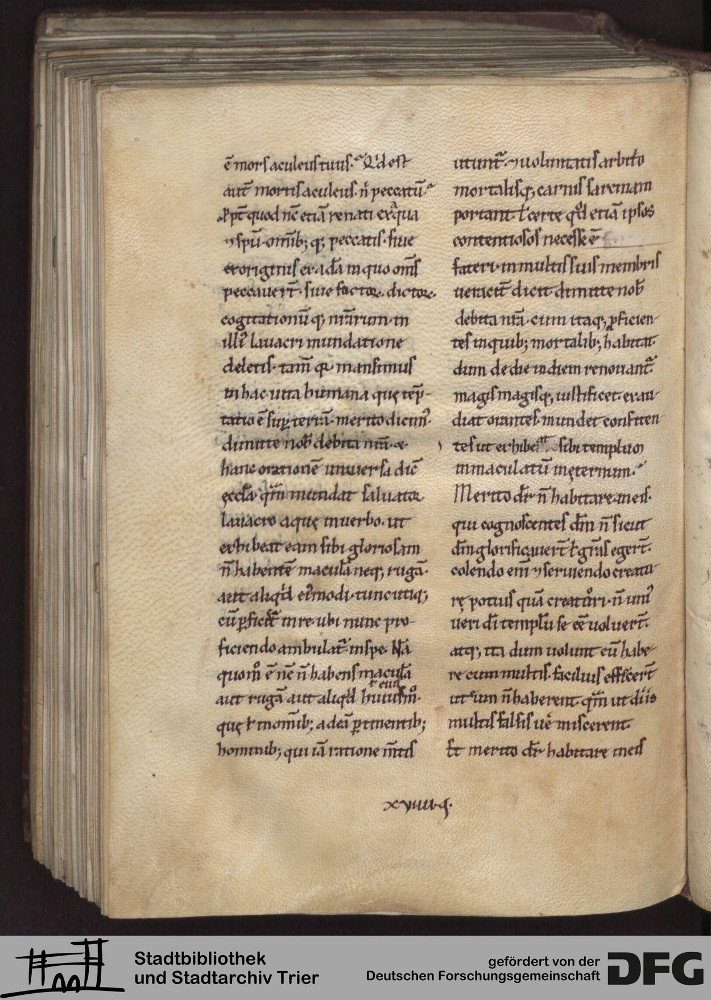 ē mors aculeus tuus. Qđ est
aut̄ mortis aculeus. n̄ peccatū.
ꝓpt̄ quod nc̄ etiā renati ex aqua
⁊ spū. omnib; q; peccatis. siue
et originis ex adā in quo om̄s
peccauer̄t. siue factoꝝ. dictoꝝ.
cogitationū q; nr̄arum. in
illi᾽ lauacri mundatione
deletis. tam̄ qa mansimus
in hac uita humana que tēp-
tatio ē sup terrā. merito dicim᾽.
dimitte nob̄ debita nr̄a. ⁊
hanc orationē uniuersa dic̄
ęccl̄a. qm̄ mundat saluator
lauacro aquę in uerbo. ut
exhibeat eam sibi gloriosam
n̄ habentē maculā neq; rugā.
aut aliq̄d ei᾽modi. tunc utiq;
cū ꝑficiet̄ in re. ubi nunc pro-
ficiendo ambulat̄ in spe. Nā
quom̄ ē nc̄ n̄ habens maculā
aut rugā aut aliq̄d huiusm̄.
quę ł in omīb; ad eā ꝑtinentib;
hominib; qui iā ratione m̄tis
utunt̄. ⁊ uoluntatis arbit̄o
mortalisq; carnis sarcinam
portant. ł certe qd̄ etiā ipsos
contentiosos necesse ē
fateri. in multis suis membris
ueracit̄ dicit dimitte nob̄
debita nr̄a. cum itaq; ꝓficien-
tes in quib; mortalib; habitat
dum de die in diem renouant̄
magis magisq; iustificet. exau-
diat orantes. mundet confiten-
tes ut exhibeat sibi templum
inmaculatū in ęternum.
Merito dr̄ n̄ habitare in eis.
qui cognoscentes dm̄ n̄ sicut
dm̄ glorificauer̄t ł gr̄as eger̄t.
colendo em̄ ⁊ seruiendo creatu-
rę potius quā creatori. n̄ uni᾽
ueri di templū se ee uoluer̄t.
atq; ita dum uolunt eū habe-
re cum multis. facilius effecer̄t
ut eum n̄ haberent. qm̄ ut diis
multis falsis ue miscerent.
Et merito dr̄ habitare in eis
xviiii. q̄.
Stadtbibliothek
und Stadtarchiv Trier
gefördert von der
Deutschen Forschungsgemeinschaft
DFG